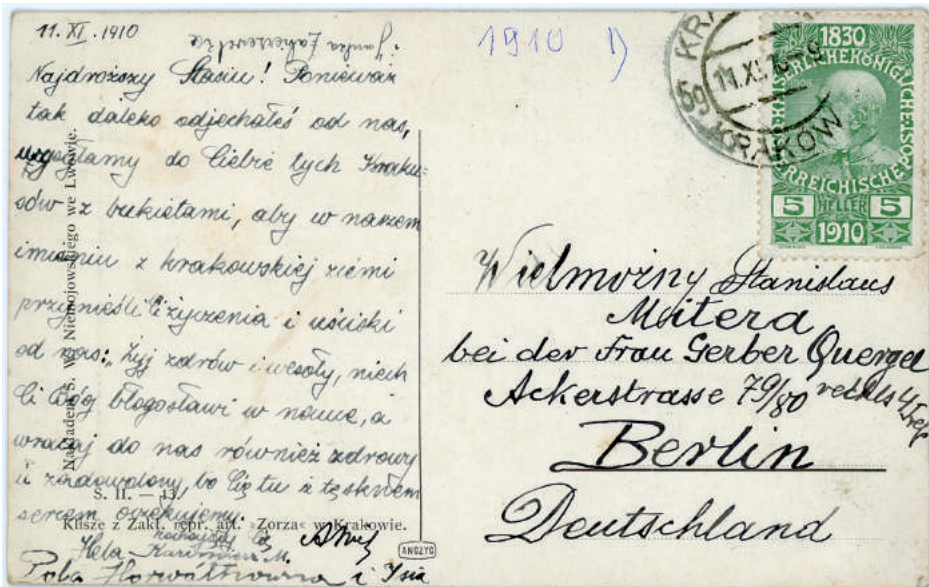 11. XI. 1910
i Janka
Najdroższy Stasiu! Ponieważ
tak daleko odjechałeś od nas,
wysyłamy do Ciebie tych Kraku=
sów z bukietami, aby w naszem
imieniu z krakowskiej ziemi
przynieśli Ci życzenia i uściski
od nas: „Żyj zdrów i wesoły, niech
Ci Bóg błogosławi w nauce, a
wracaj do nas również zdrowy
i zadowolony, bo Cię tu z tęsknem
sercem oczekujemy.
kochający Cię
Hela Kazimierz M.
Pola Horwáthowna i Ysia
Nakładem S. W. Niemojowskiego we Lwowie.
S. II. — 13.
Klisze z Zakł. repr. art. »Zorza« w Krakowie.
ANCZYC
1910 1)
59 KRAKÓW
11.XI.10
KRAKOW
1830
KAISERLICHE KÖNIGLICHE
ÖSTERREICHISCHE
1908
5 HELLER 5
1910
Wielmożny Stanislaus
Matera
bei der Frau Gerber Quergeb
Ackerstrasse 79/80 rechts 4 Trep
Berlin
Deutschland